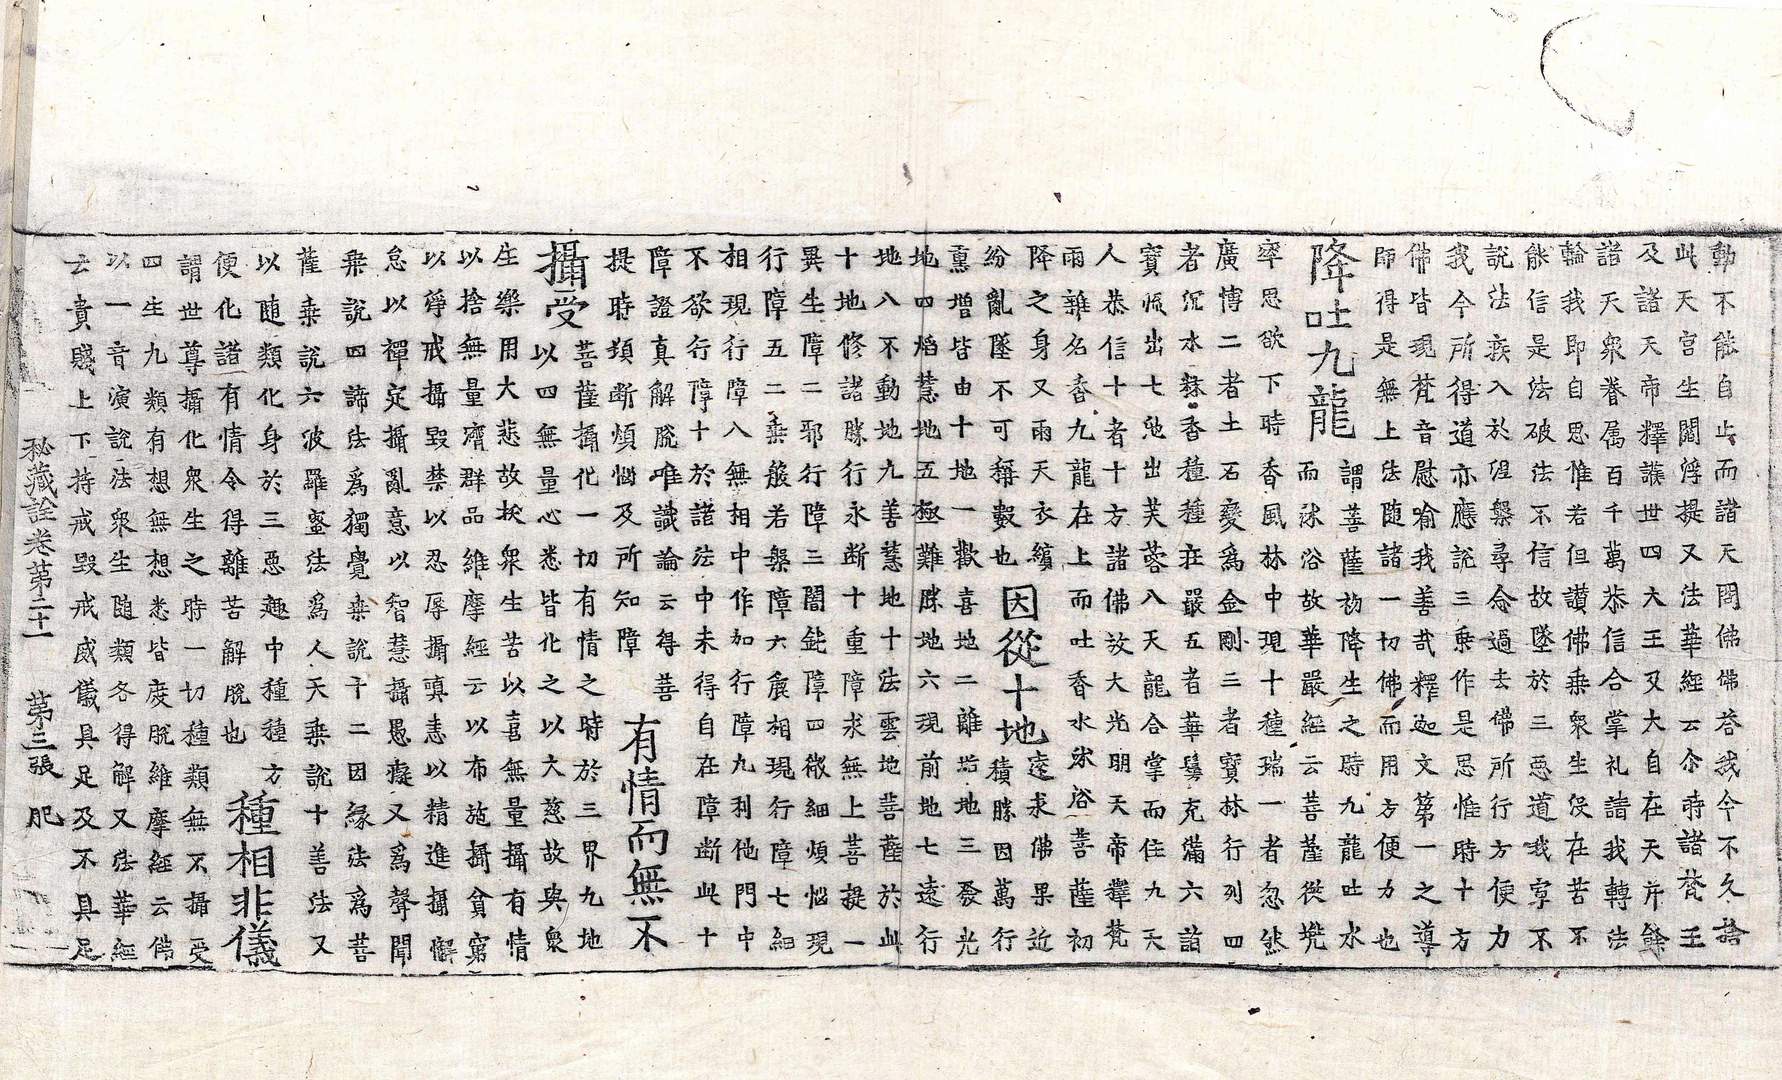 動不能自止而諸天問佛佛荅我今不久捨
此天宮生閻浮提又法華經云尒時諸梵王
及諸天帝釋護世四大王又大自在天并餘
諸天衆眷屬百千萬恭信合掌礼請我轉法
輪我即自思惟若但讃佛乗衆生没在苦不
能信是法破法不信故墜於三惡道我寧不
說法疾入於涅槃尋念過去佛所行方便力
我今所得道亦應說三乗作是思惟時十方
佛皆現梵音慰喻我善哉釋迦文第一之導
師得是無上法随諸一切佛而用方便力也
降吐九龍
謂菩薩初降生之時九龍吐水
而沐浴故華嚴經云菩薩從兜
率思欲下時香風林中現十種瑞一者忽然
廣博二者土石變爲金剛三者寶林行列四
者沉水抹香種種莊嚴五者華鬘充滿六諸
寶流出七池出芙蓉八天龍合掌而住九天
人恭信十者十方諸佛放大光明天帝釋梵
雨雜名香九龍在上而吐香水沐浴菩薩初
降之身又雨天衣繽
紛亂墜不可稱數也
因從十地
遠求佛果近
積勝因萬行
熏增皆由十地一歡喜地二離垢地三發光
地四焰慧地五極難勝地六現前地七遠行
地八不動地九善慧地十法雲地菩薩於此
十地修諸勝行永断十重障求無上菩提一
異生障二邪行障三闇鈍障四微細煩惱現
行障五二乗般若槃障六麁相現行障七細
相現行障八無相中作加行障九利他門中
不欲行障十於諸法中未得自在障断此十
障證真解脫唯識論云得菩
提時頓断煩惱及所知障
有情而無不
攝受
菩薩攝化一切有情之時於三界九地
以四無量心悉皆化之以大慈故與衆
生樂用大悲故拔衆生苦以喜無量攝有情
以捨無量濟群品維摩經云以布施攝貪窮
以淨戒攝毀禁以忍辱攝嗔恚以精進攝懈
怠以禪㝎攝亂意以智慧攝愚癡又爲聲聞
乗說四諦法爲獨覺乗說十二因緣法爲菩
薩乗說六波羅蜜法爲人天乗說十善法又
以随類化身於三惡趣中種種方
便化諸有情令得離苦解脫也
種相非儀
謂世尊攝化衆生之時一切種類無不攝受
四生九類有想無想悉皆度脫維摩經云佛
以一音演說法衆生随類各得解又法華經
云貴賤上下持戒毀戒威儀具足及不具足
秘藏詮卷第二十一 第三張 肥